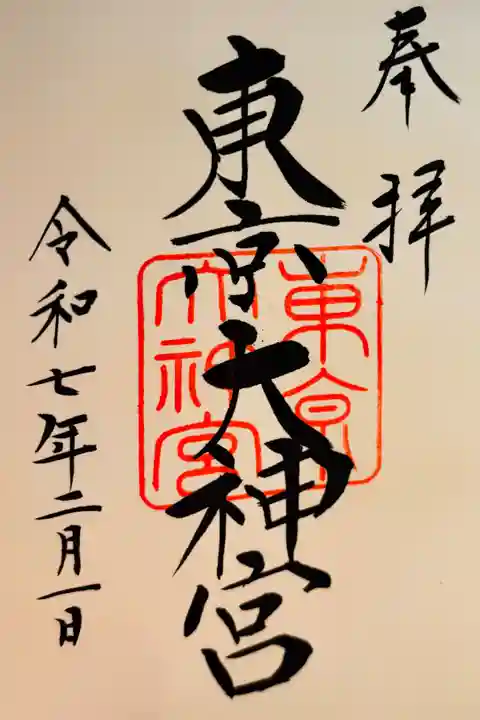 奉拝
東京大神宮
東京
大神宮
令和七年二月一日